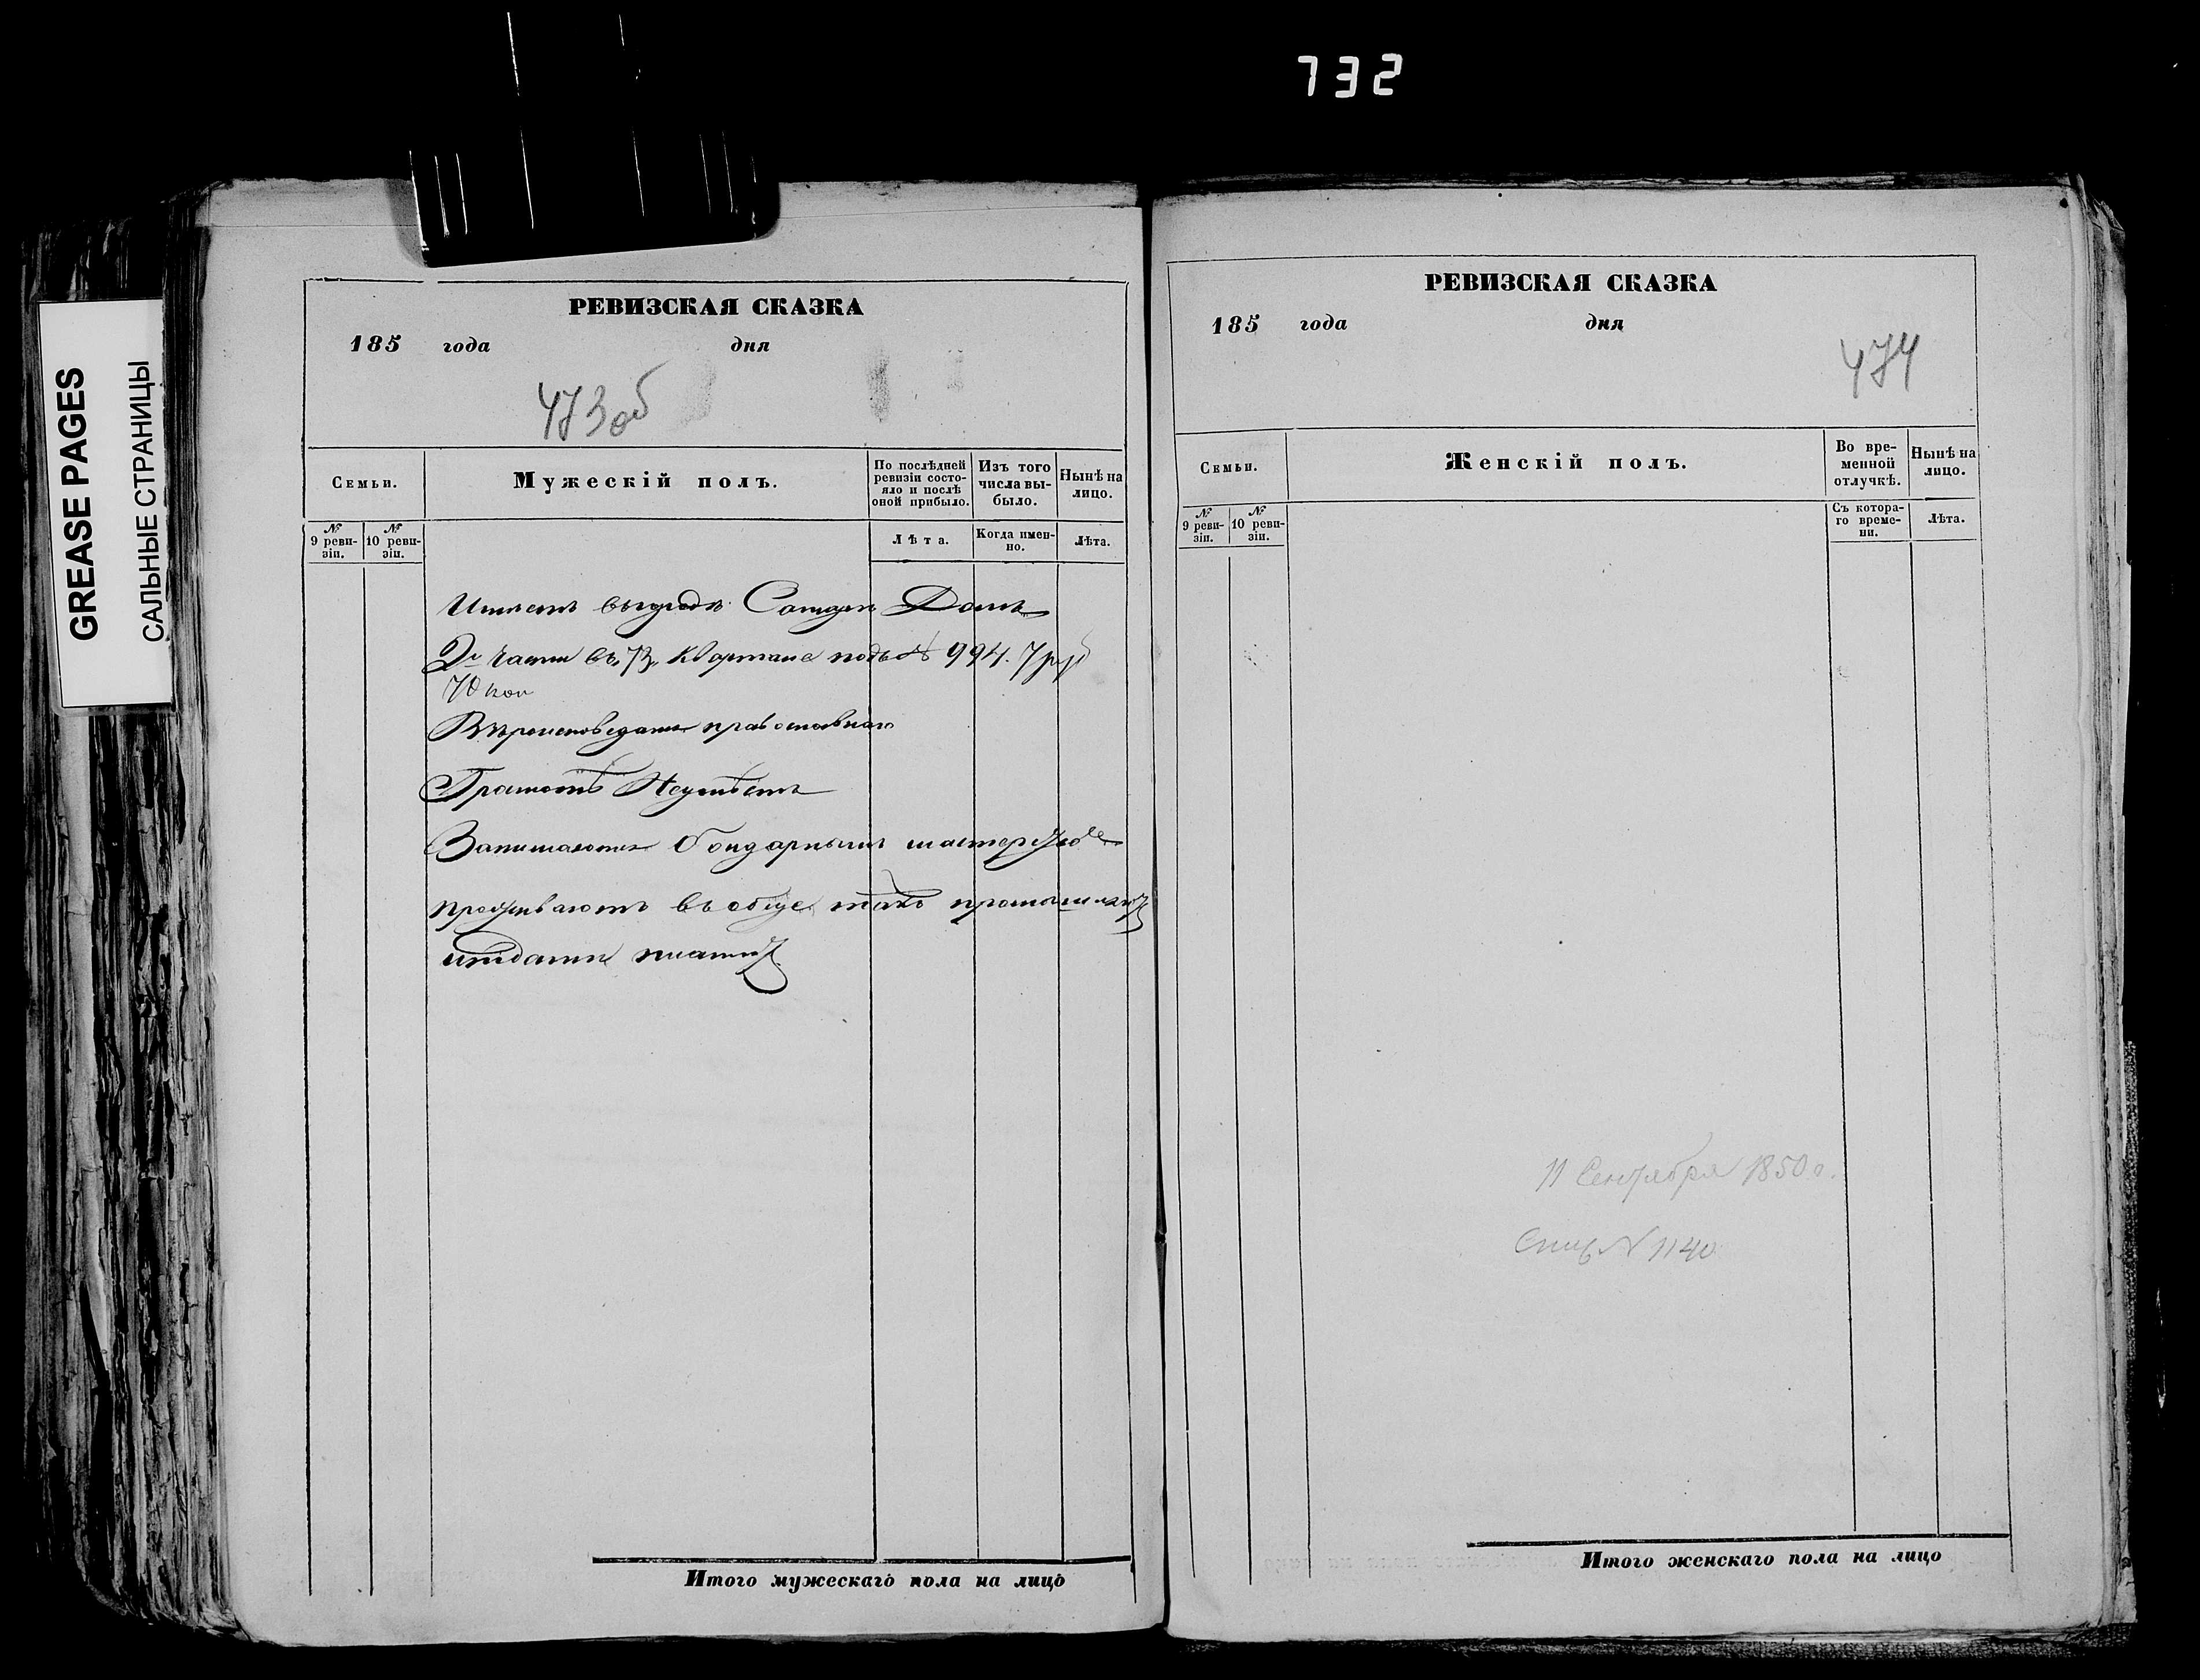 732
GREASE PAGES
САЛЬНЫЕ СТРАНИЦЫ
РЕВИЗСКАЯ СКАЗКА
185 года дня
473об
Семьи.
Мужескій полъ.
По послѣдней ревизіи состояло и послѣ оной прибыло.
Изъ того числа выбыло.
Нынѣ на лицо.
№ 9 ревизіи.
№ 10 ревизіи.
Лѣта.
Когда именно.
Лѣта.
Имеетъ вгородѣ Домъ
2й части въ 73 кварталѣ подъ № 994. 7 руб
70 коп
Вѣроисповеданія православнаго
Грамотѣ Неумѣетъ
Занимаются бондарнымъ мастерств
проживаютъ въобще
платит
Итого мужескаго пола на лицо
РЕВИЗСКАЯ СКАЗКА
185 года дня
474
Семьи.
Женскій полъ.
Во временной отлучкѣ.
Нынѣ на лицо.
№ 9 ревизіи.
№ 10 ревизіи.
Съ котораго времени.
Лѣта.
11 Сентября 1850 г.
№ 1140
Итого женскаго пола на лицо